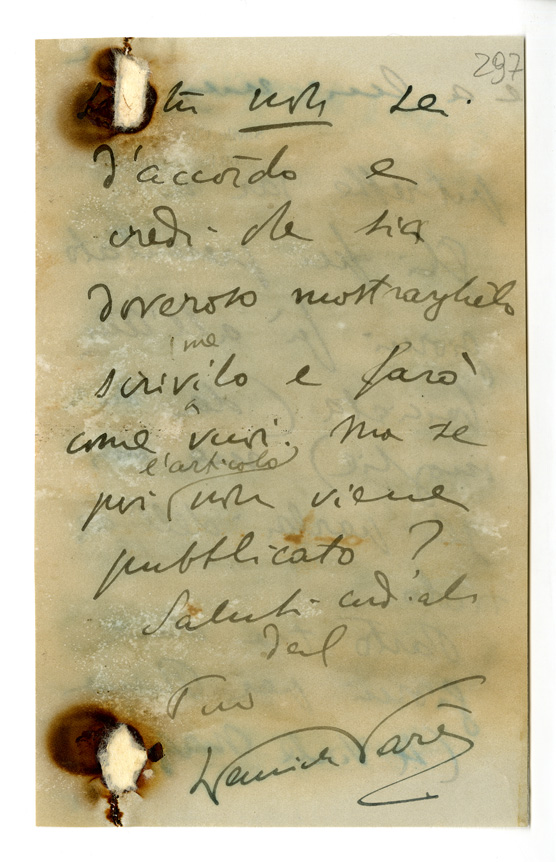 297
Se tu non sei
d'accordo e
credi che sia
doveroso mostrarglielo
me
scrivilo e farò
come vuoi. Ma se
l'articolo
poi non viene
pubblicato?
Saluti cordiali
dal
Tuo
Daniele Varè